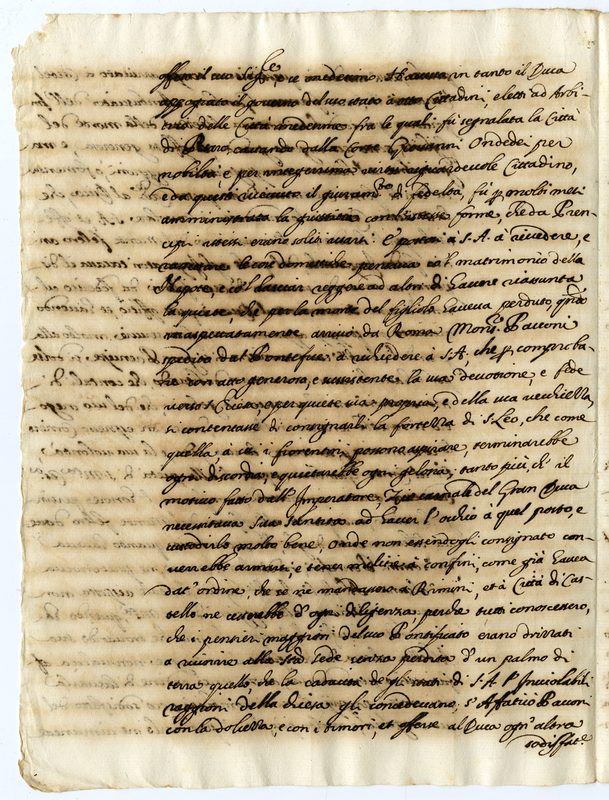 offeso il suo Sig.re, e se medesimo. Haveva in tanto il Duca
appoggiato il governo del suo stato à otto Cittadini, eletti ad Arbi-
trio delle Città medesime fra le quali fù segnalata la Città
di Pesaro, cavando dalla Corte Giovanni Ondedei per
nobiltà, e per integerrima virtù ragguardevole Cittadino,
e da questi ricevuto il giuram.to di fedeltà, fù p molti mesi
amministrata la giustitia con l'istesse forme, che da Pren-
cipi istessi erano soliti usarsi. E postosi S. A. à rivedere, e
le cose domestiche, il matrimonio della
Nipote, e co'l lasciar reggere ad altri di havere riassunta
la quiete, che per la morte del figliolo haveva perduto, q.do
inaspettatamente arrivò da Roma Mons.re Pavoni
spedito dal Pontefice à richiedere à S. A. che p comproba-
re con atto generoso, e sussistente la sua devotione, e fede
verso S. Chiesa, e per quiete sua propria, e della sua vecchiezza,
si contentasse di consignarli la fortezza di S. Leo, che come
quella à cui i fiorentini possono aspirare, terminarebbe
ogni discordia, e quietarebbe ogni gelosia; tanto più, ch'il
motivo fatto dall'Imperatore del Gran Duca
necessitava Sua Santità ad haver l'occhio à quel posto, e
custodirlo molto bene, onde non essendogli consignato con-
verrebbe armarsi, e tener militie à confini, come già haveva
dat'ordine, che se ne mandassero à Rimini, et à Città di Cas-
tello ne cesserebbe d'ogni diligenza, perche tutti conoscessero,
che i pensieri maggiori del suo Pontificato erano drizzati
a riunire alla Sua Sede senza perdita d'un palmo di
terra quello, che la caducità degli stati di S. A. l'Inviolabili
raggioni della chiesa gli concedevano, s'affaticò Pavoni
con la dolcezza, e con i timori, et offerse al Duca ogn'altra
sodisfat.e